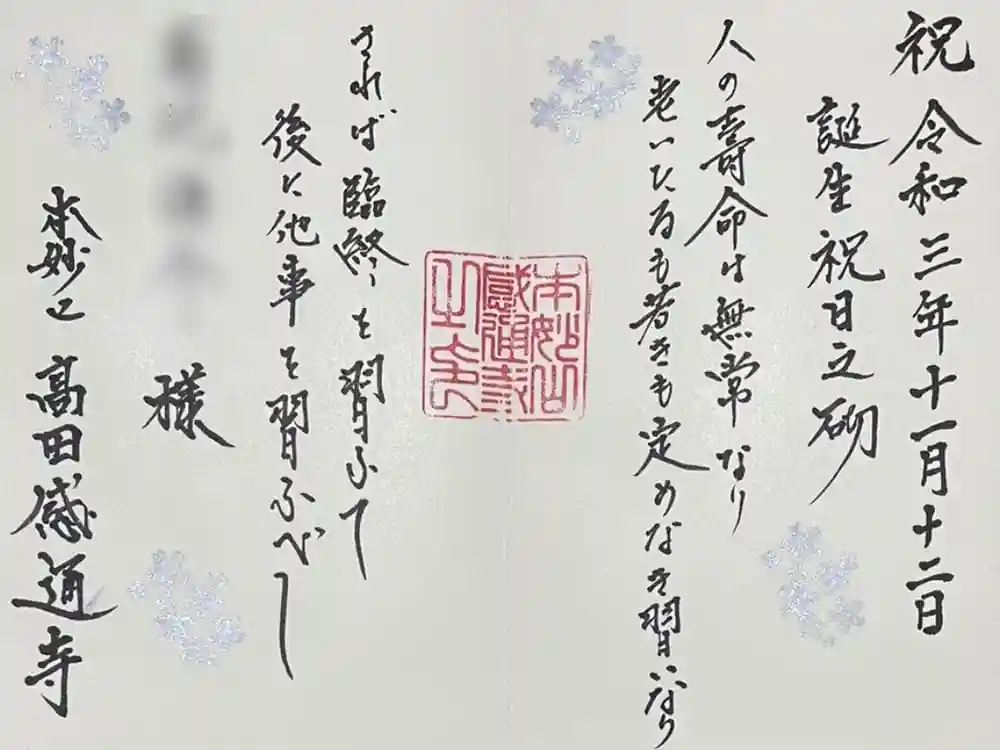 祝 令和三年十一月十二日
誕生祝日之砌
人の壽命は無常なり
老いたるも若きも定めなき習いなり
本妙山
感通寺
之印
されば臨終を習ふて
後に他事を習ふべし
様
本妙山 高田感通寺